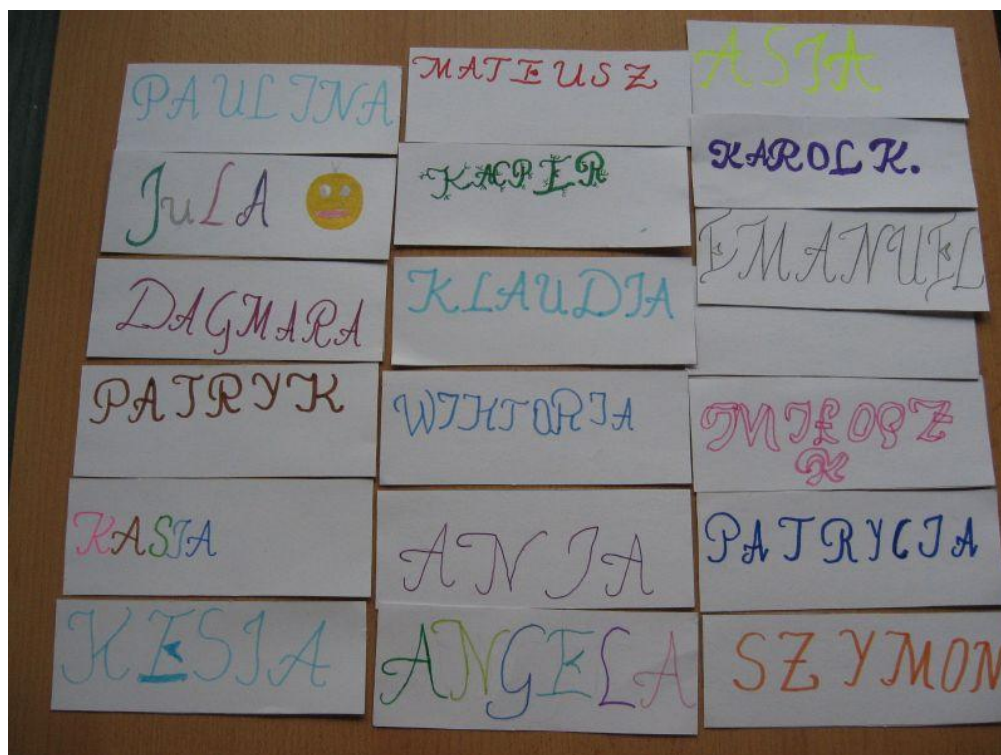 PAULINA
JuLA
DAGMARA
PATRYK
KASIA
KESIA
MATEUSZ
KACPER
KLAUDIA
WIKTORIA
ANIA
ANGELA
ASIA
KAROL K.
EMANUEL
MIŁOSZ
K
PATRYCIA
SZYMON